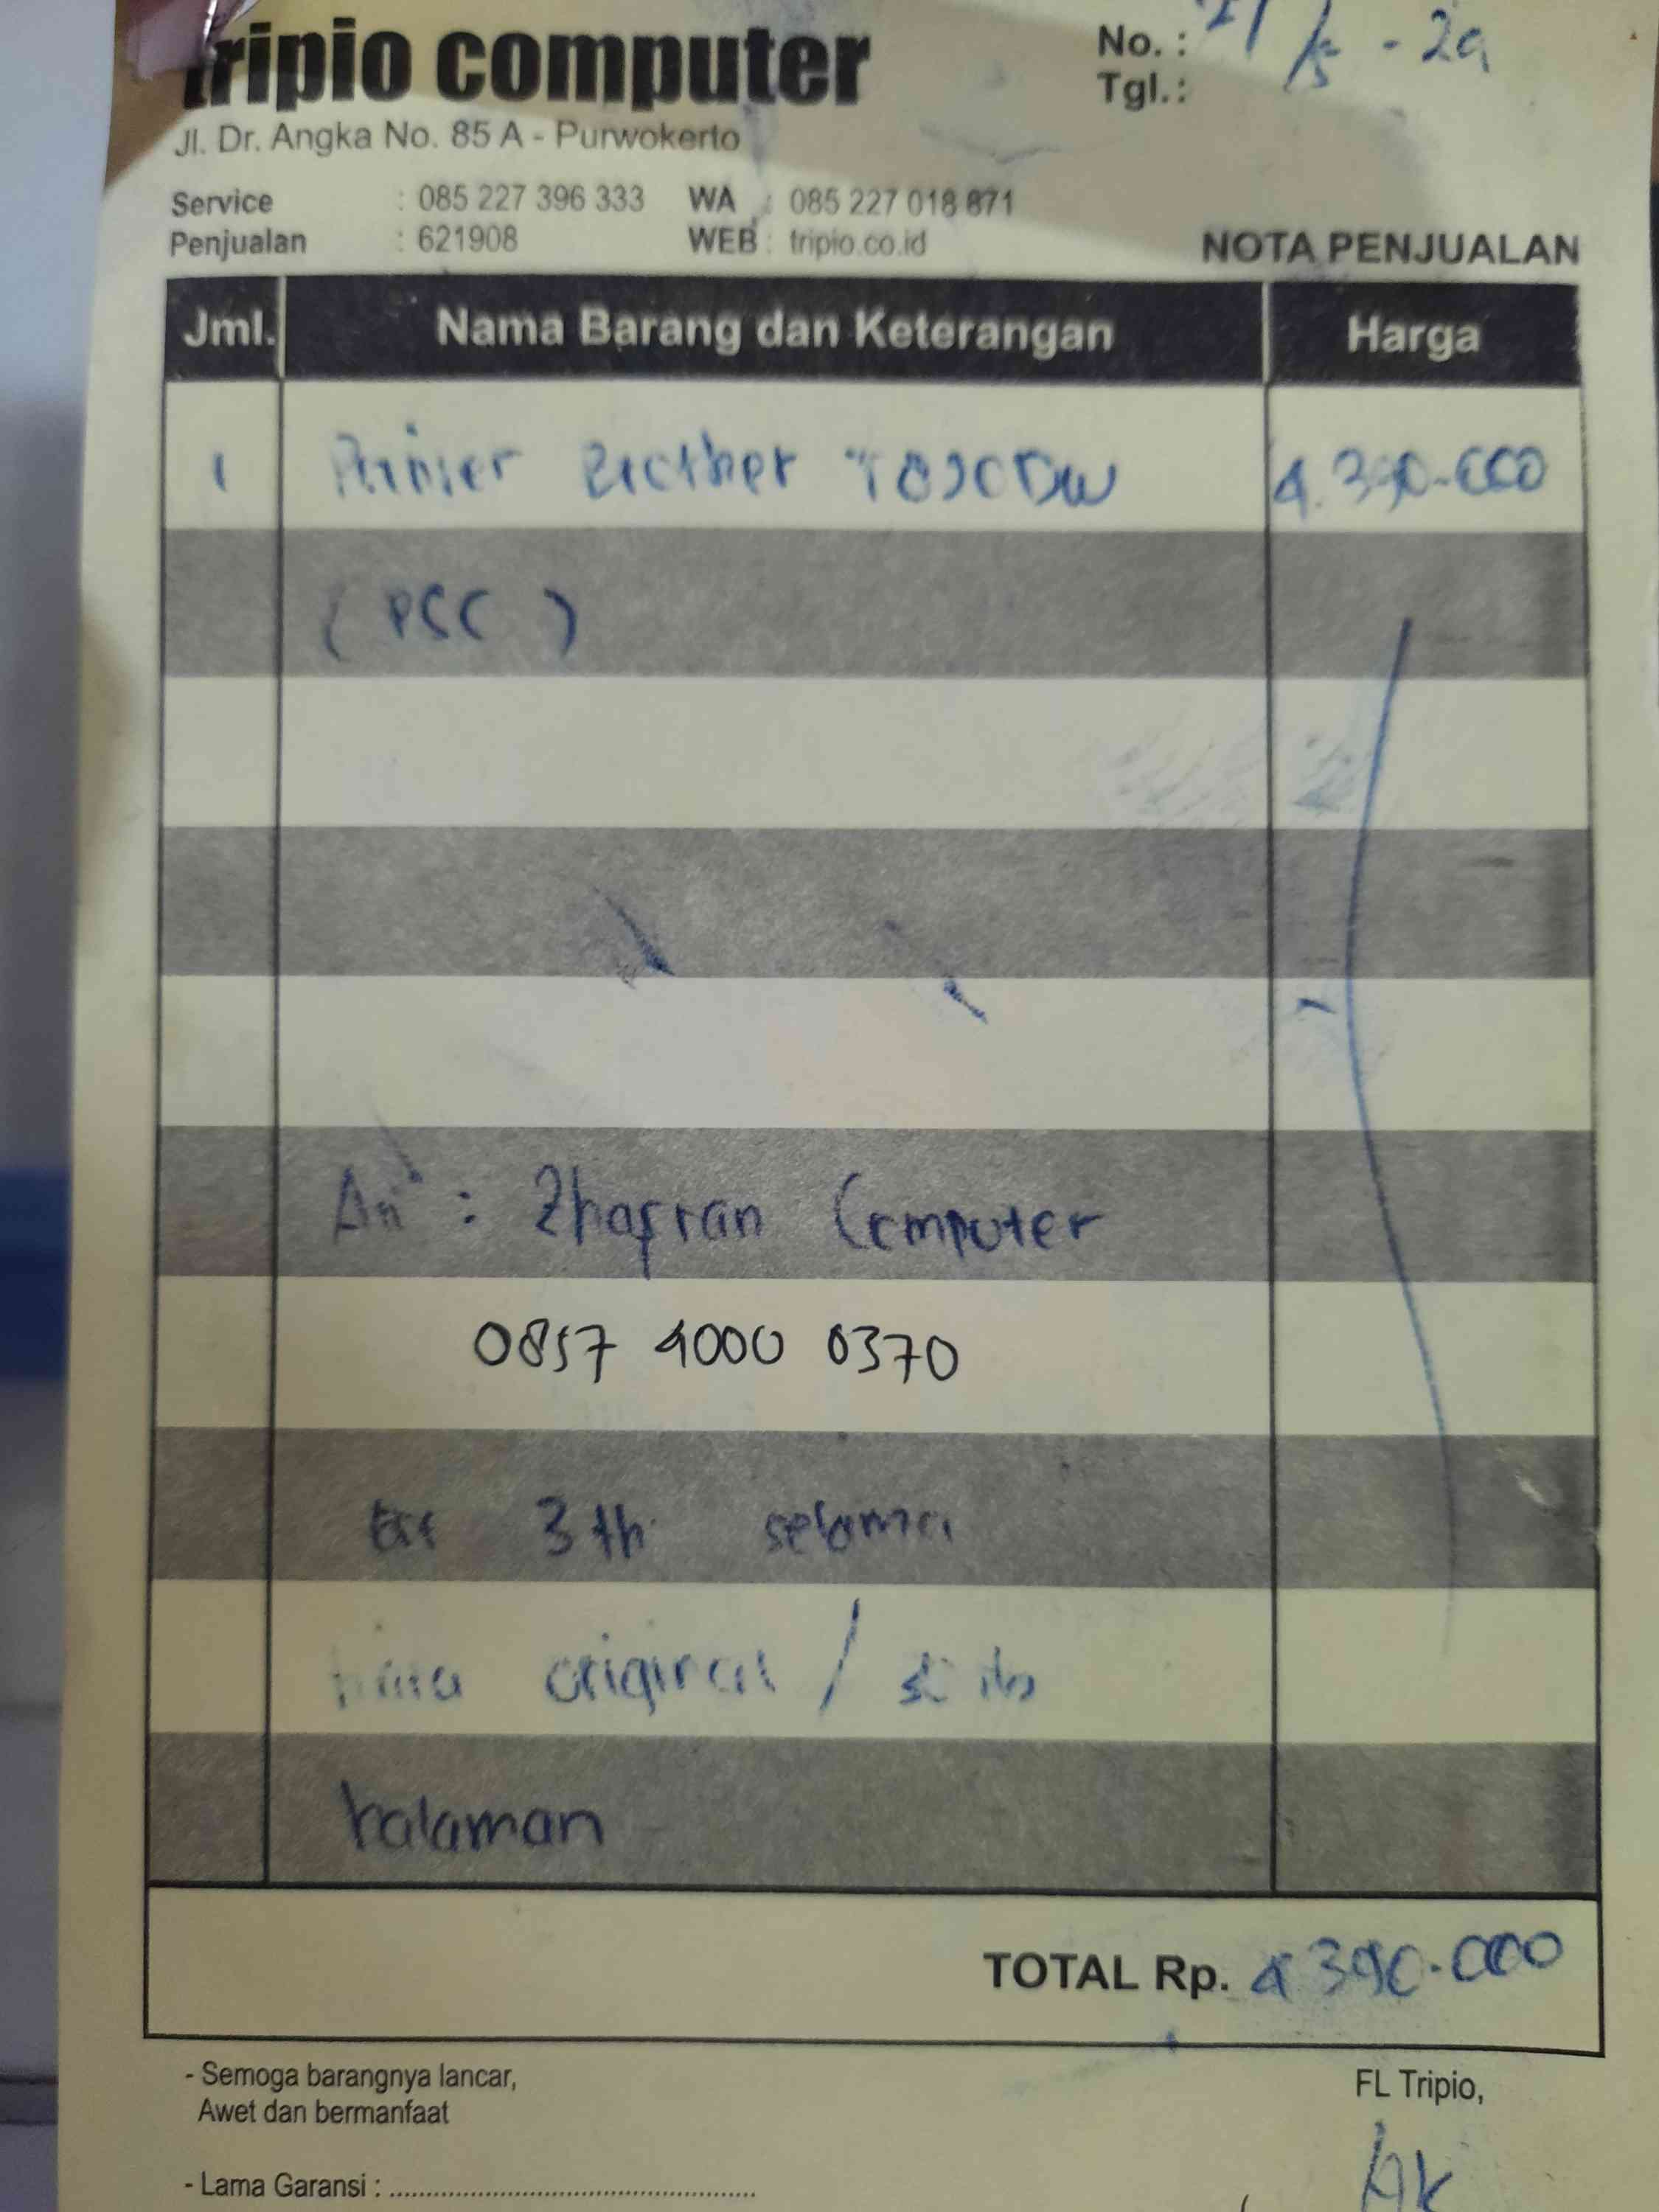 tripio computer
No. : 21/5 - 24
Tgl. :
Jl. Dr. Angka No. 85 A - Purwokerto
Service : 085 227 396 333 WA : 085 227 018 871
Penjualan : 621908 WEB : tripio.co.id
NOTA PENJUALAN
Jml. Nama Barang dan Keterangan Harga
1 Printer Brother T820DW 4.390.000
( PSC )
An : Zhafran Computer
0857 4000 0370
3 th selama
tinta original /
halaman
TOTAL Rp. 4 390.000
- Semoga barangnya lancar,
Awet dan bermanfaat
FL Tripio,
- Lama Garansi :